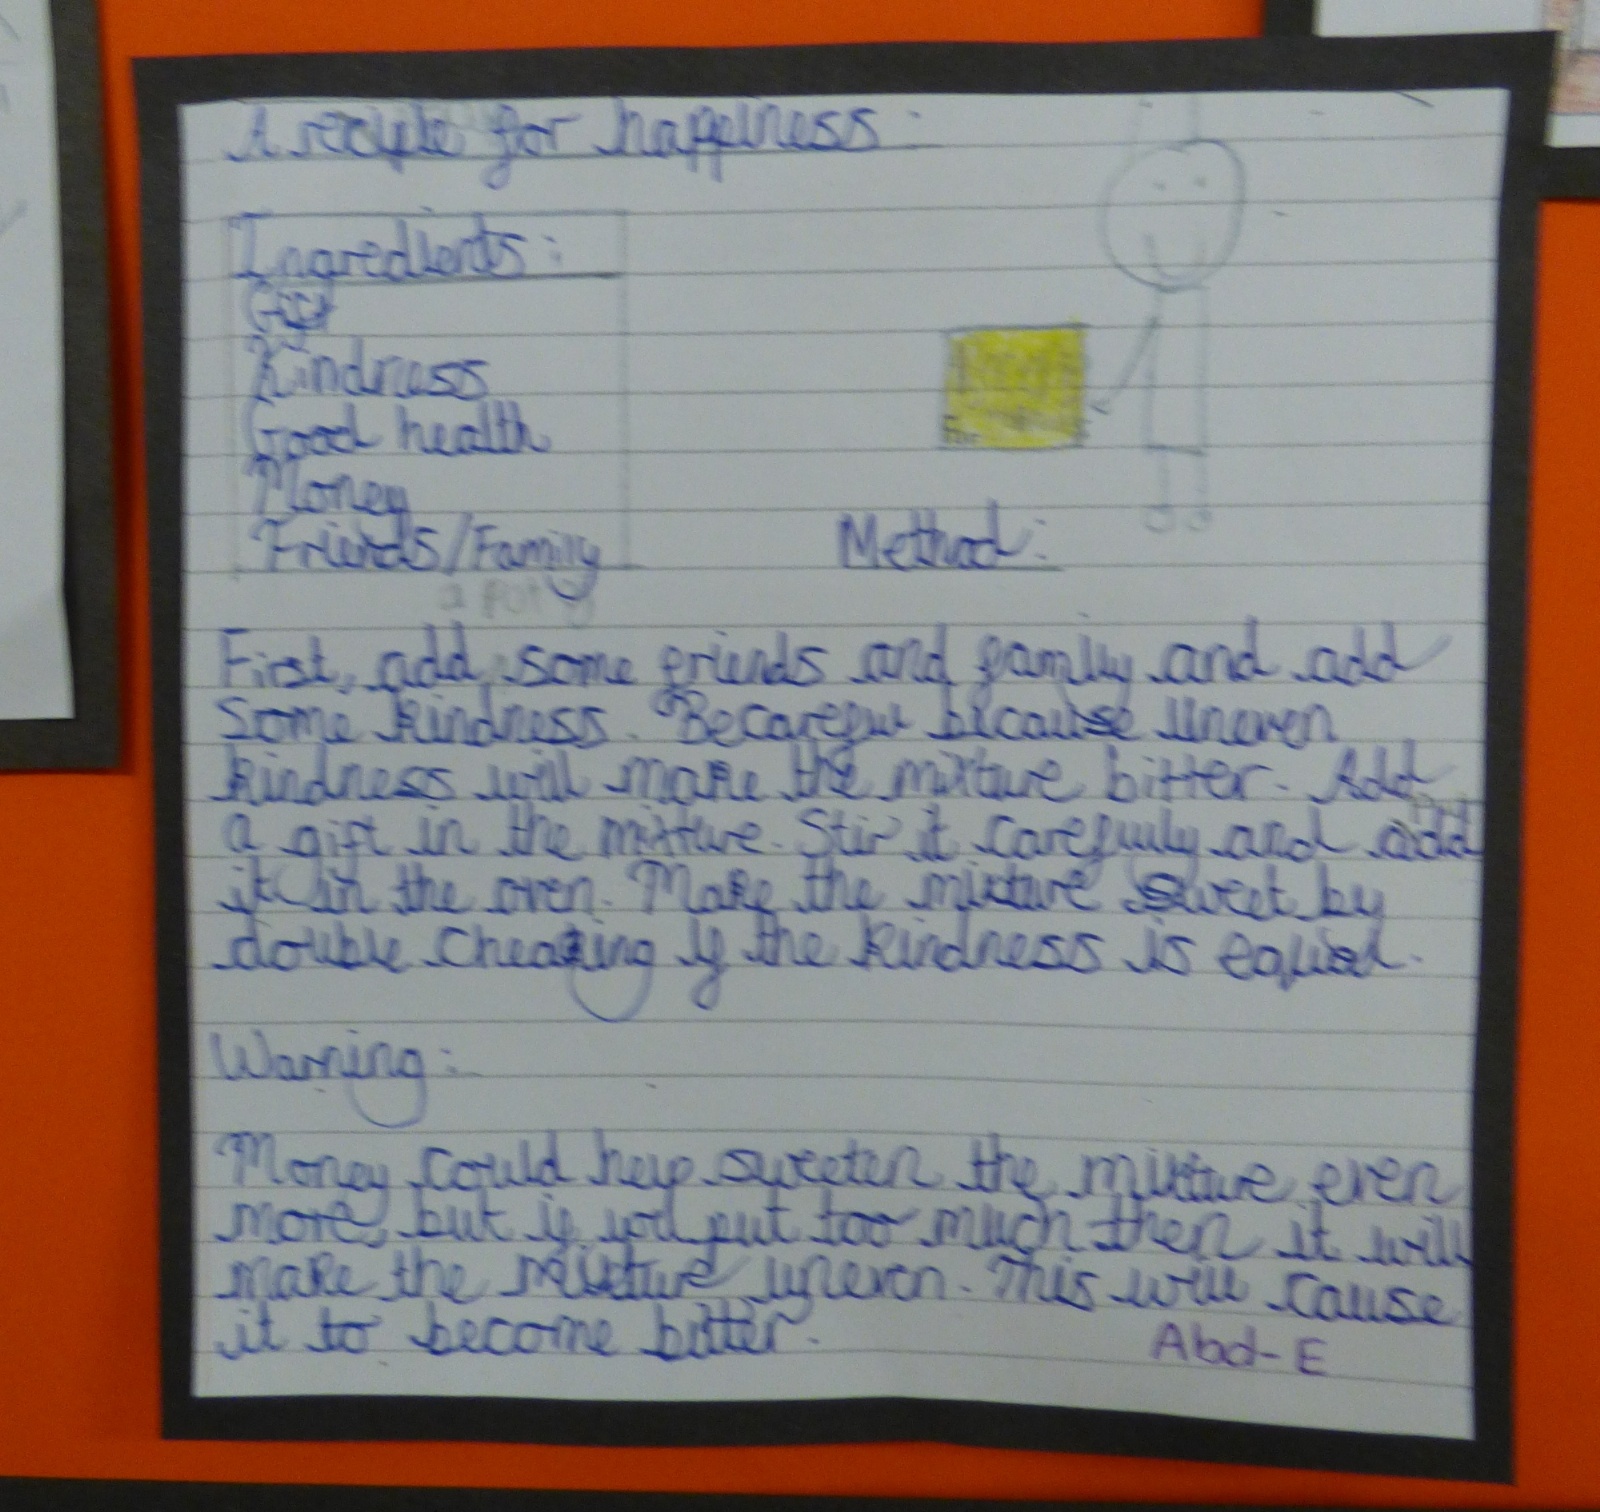 A recipie for happiness:
Ingredients:
Gift
Kindness
Good health
Money
Friends/Family
Method:
a pot of
First, add some friends and family and add
some kindness. Becareful because uneven
kindness will make the mixture bitter. Add
a gift in the mixture. Stir it carefully and add
it in the oven. Make the mixture sweet by
double cheaking if the kindness is equal.
Warning:
Money could help sweeten the mixture even
more, but if you put too much then it will
make the mixture uneven. This will cause
it to become bitter.
Abd-E